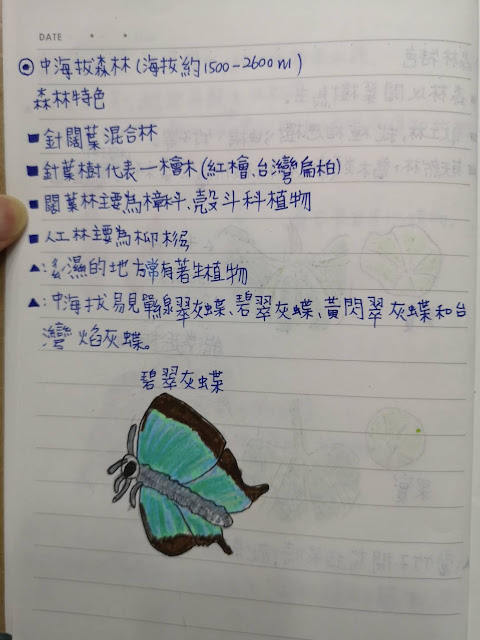 DATE
中海拔森林(海拔約1500-2600m)
森林特色
針闊葉混合林
針葉樹代表—檜木(紅檜、台灣扁柏)
闊葉林主要為樟科、殼斗科植物
人工林主要為柳杉
潮濕的地方常有著生植物
中海拔易見單線翠灰蝶、碧翠灰蝶、黃閃翠灰蝶和台
灣焰灰蝶。
碧翠灰蝶